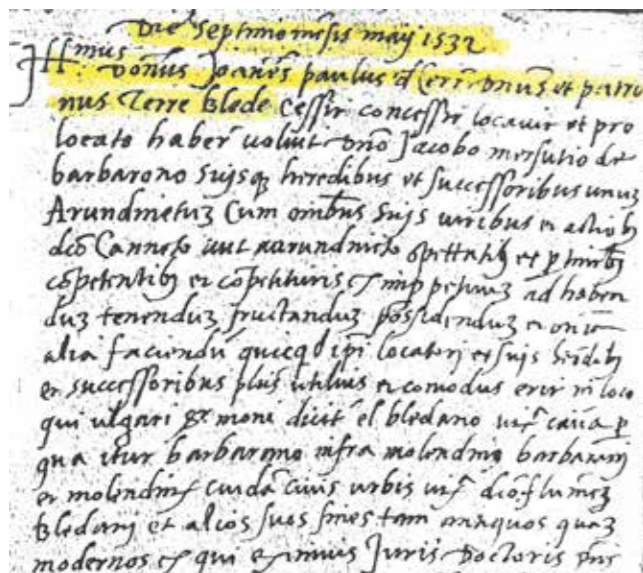 Die septimo mēsis maij 1532
Ill.mus Domn̄us Joanēs paulus d̄ Cerē Dn̄us et patro
nus Terre Blede Cessit concessit locavit et pro
locato haberē voluit Dno Jacobo mersutio de
barbarono suisq heredibus et successoribus unuz
Arundinetuz Cum omībus suis iuribus et actioīb
dcō Canneto aut arundineto spettātib et ptinētib
cōpetentib et cōpetituris et imppetuuz ad haben
duz tenenduz fructanduz possidenduz et omīa
alia faciendū quicqd ipi locatori et suis heredib
et successoribus plus utilius et comodius erit in loco
qui vulgari sermone dicit el bledano
qua itur barbarano infra molendinū barbarani
et molendinū cuidā civis urbis dcō flumez
Bledani et alios suos fines tam antiquos quaz
modernos et qui eximius Juris Doctoris